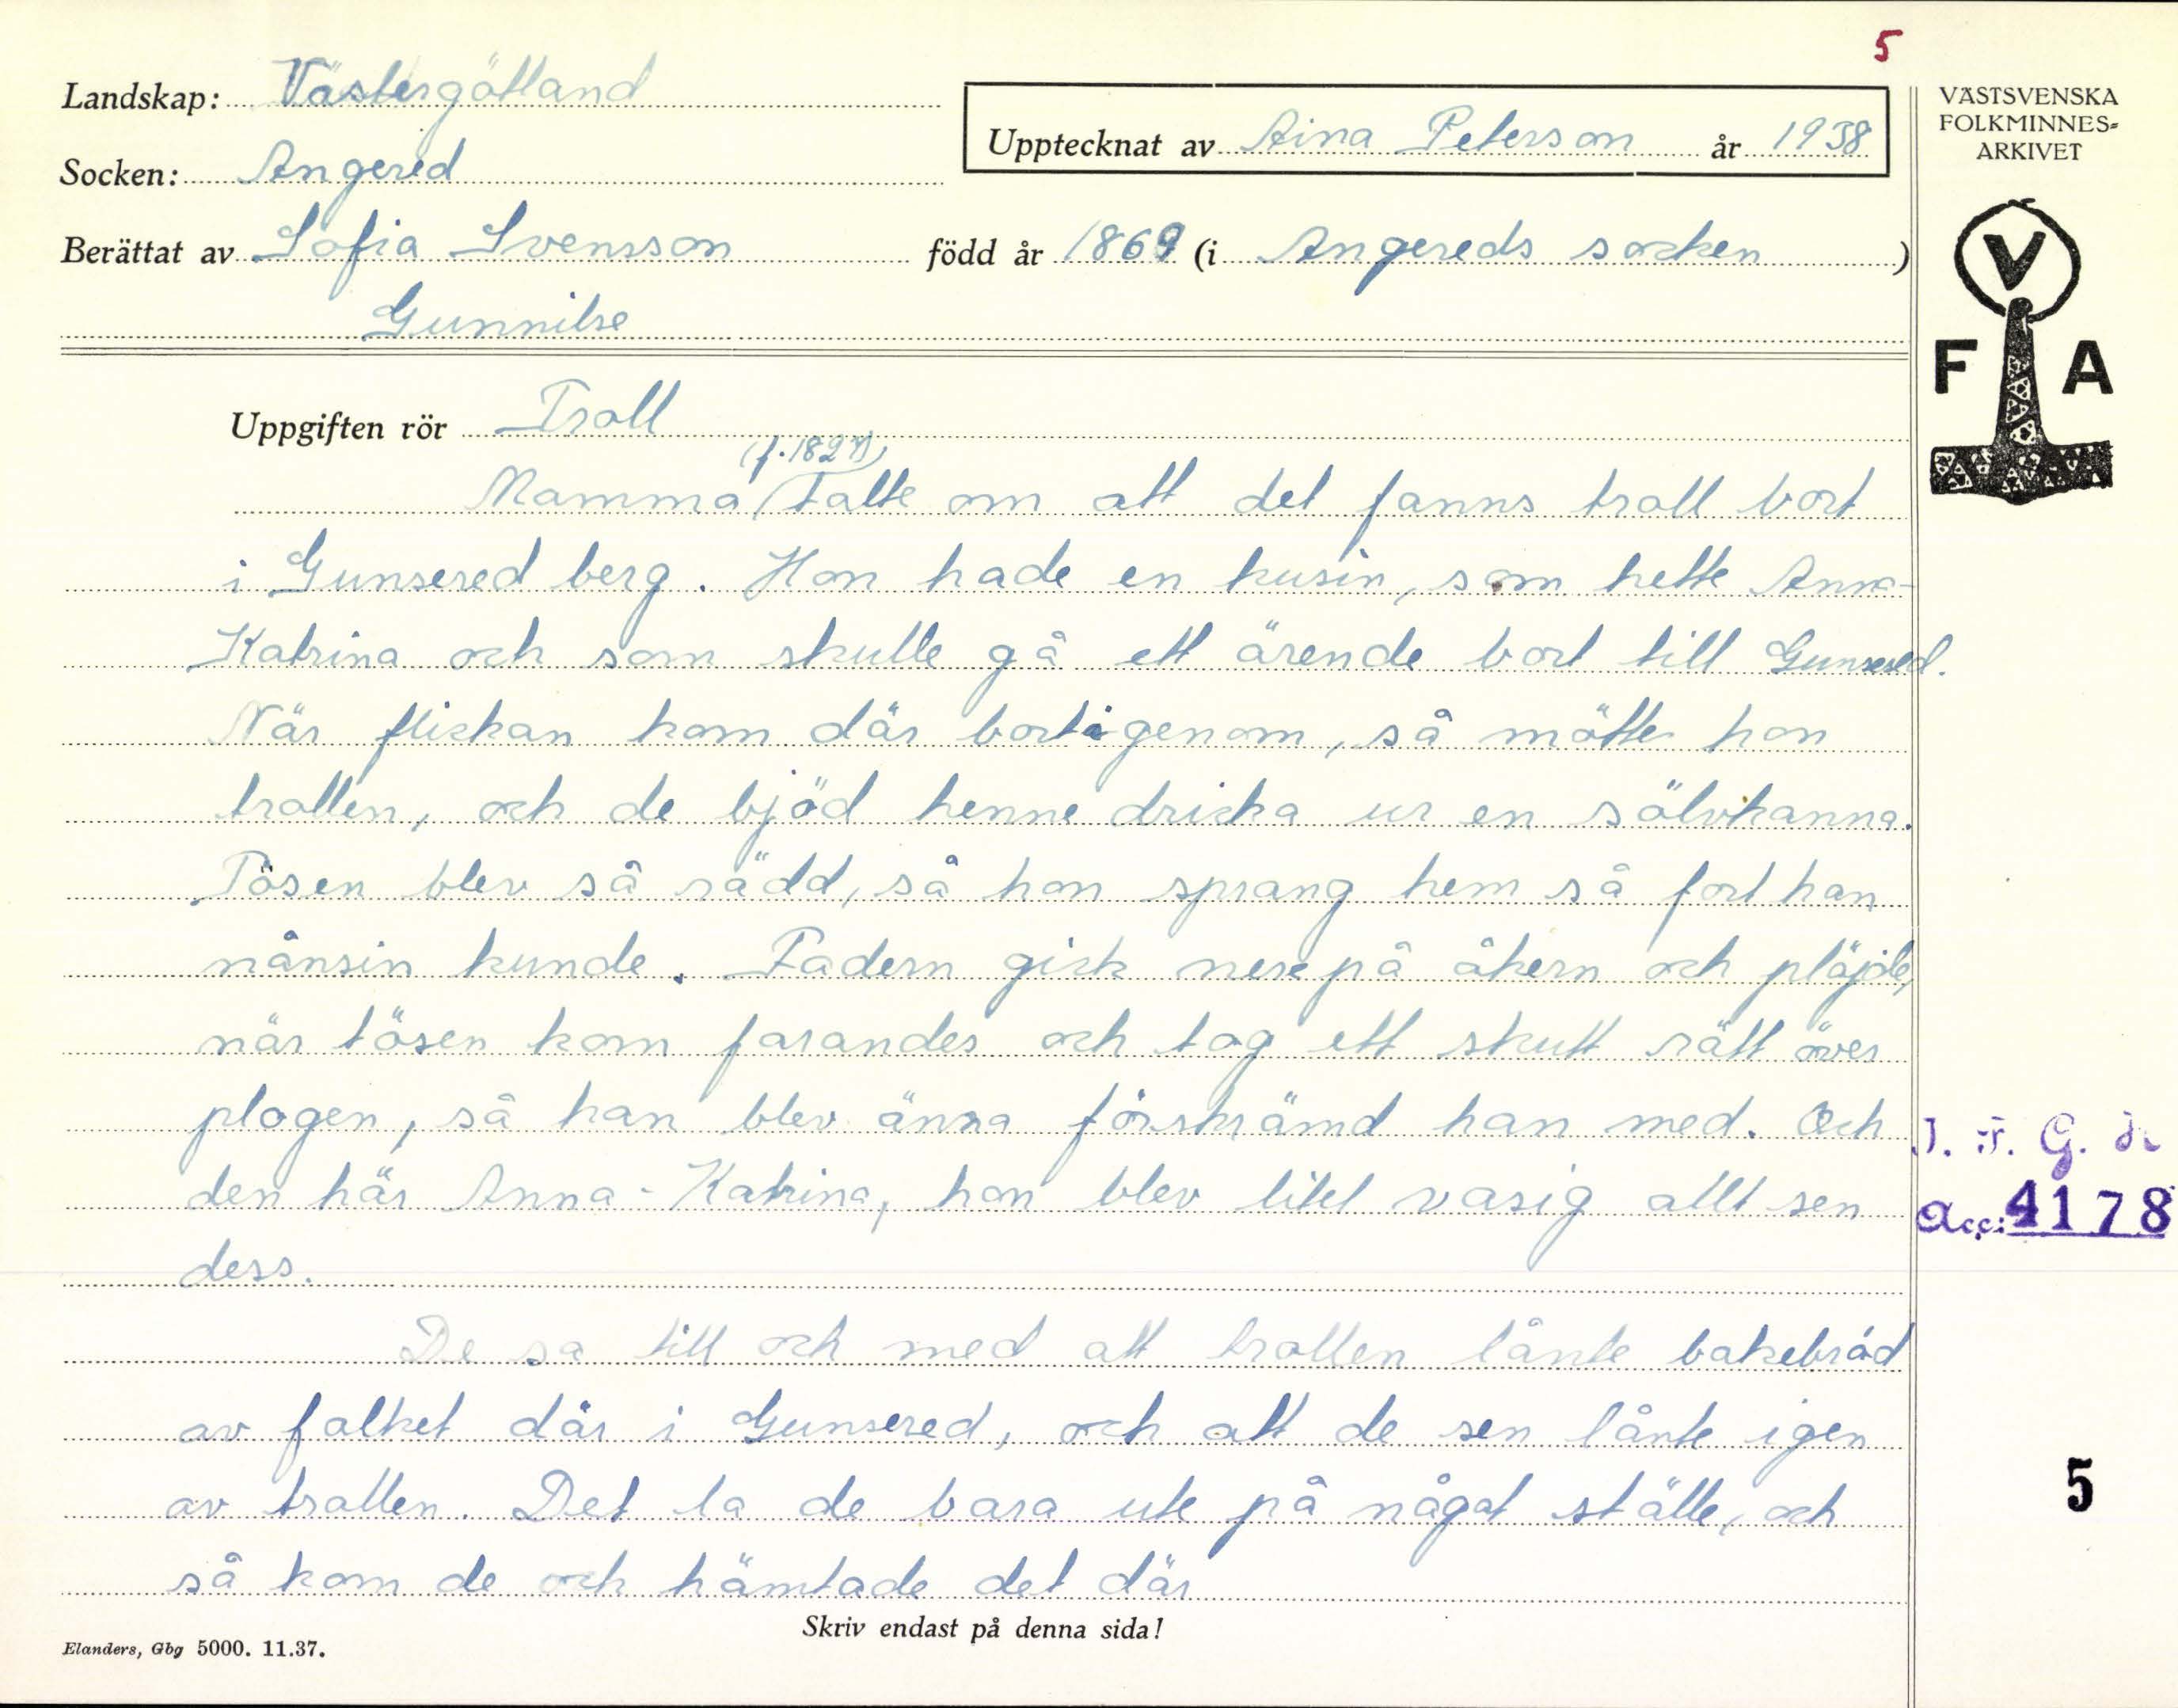 5
Landskap: Västergötland
Upptecknat av Aina Peterson år 1938
VÄSTSVENSKA
FOLKMINNES=
ARKIVET
Socken: Angered
Berättat av Sofia Svensson född år 1869 (i Angereds socken)
Gunnilse
V
F A
Uppgiften rör Troll
(f. 1827)
Mamma talte om att det fanns troll bort
i Gunsered berg. Hon hade en kusin, som hette Anna-
Katrina och som skulle gå ett ärende bort till Gunsered.
När flickan kom där bortigenom, så mötte hon
trollen, och de bjöd henne dricka ur en sölvkanna.
Tösen blev så rädd, så hon sprang hem så fort hon
nånsin kunde. Fadern gick nere på åkern och pläjde,
när tösen kom farandes och tog ett skutt rätt över
plogen, så han blev änna förskrämd han med. Och
den här Anna-Katrina, hon blev litet vasig allt sen
dess.
De sa till och med att trollen lånte bakebröd
av folket där i Gunsered, och att de sen lånte igen
av trollen. Det la de bara ute på något ställe, och
så kom de och hämtade det där
I. F. G. s
Acc: 4178
5
Skriv endast på denna sida!
Elanders, Gbg 5000. 11.37.